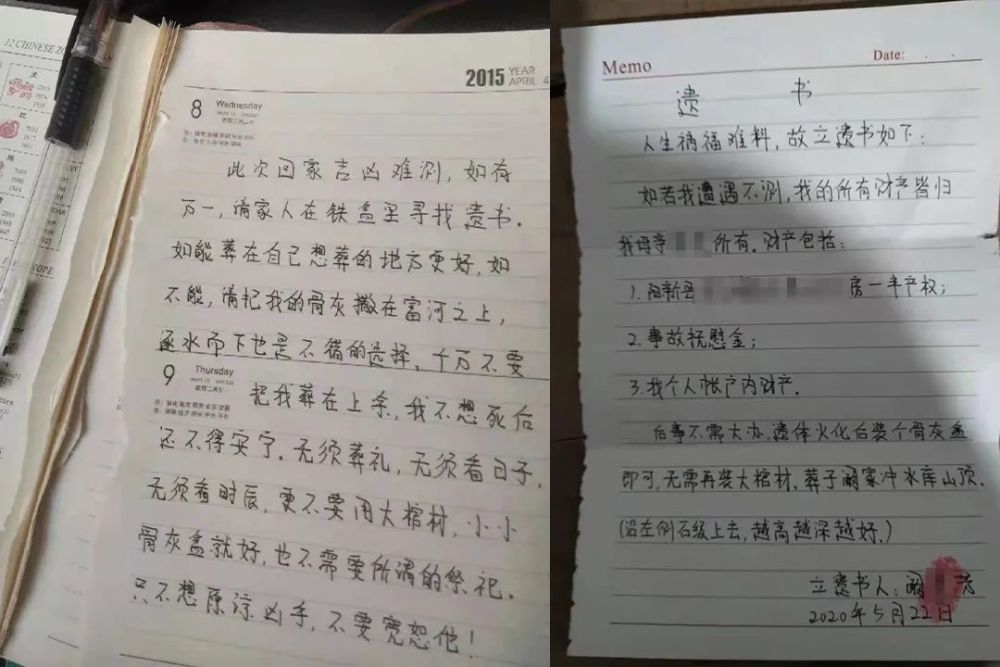 12 CHINESE ZO
2015 YEAR
APRIL 4
8 Wednesday
此次回家吉凶难测，如有
万一，请家人在铁盒里寻找遗书．
如能葬在自己想葬的地方更好，如
不能，请把我的骨灰撒在富河之上，
逐水而下也是不错的选择，千万不要
9 Thursday
把我葬在上余，我不想死后
还不得安宁．无须葬礼，无须看日子，
无须看时辰，更不要用大棺材，小小
骨灰盒就好，也不需要所谓的祭祀．
只不想原谅凶手，不要宽恕他！
Memo
Date:
遗 书
人生祸福难料，故立遗书如下：
如若我遭遇不测，我的所有财产皆归
我母亲 所有．财产包括：
1．阳新县 房一半产权；
2．事故抚慰金；
3．我个人帐户内财产．
后事不需大办，遗体火化后装个骨灰盒
即可，无需再装大棺材．葬于阚家冲水库山顶．
（沿左侧石级上去，越高越深越好．）
立遗书人：阚 芳
2020年5月22日